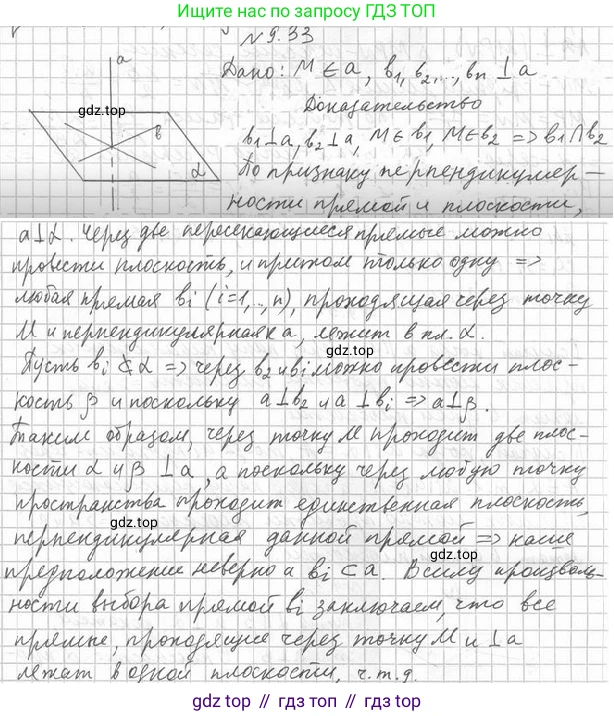 Ищите нас по запросу ГДЗ ТОП
№9.33
a
Дано: M ∈ a, b₁, b₂,..., bn ⊥ a
gdz.top
Доказательство
b
α
b₁⊥a, b₂⊥a, M∈b₁, M∈b₂ => b₁∩b₂
По признаку перпендикуляр-
ности прямой и плоскости,
a⊥α. Через две пересекающиеся прямые можно
провести плоскость, и притом только одну =>
любая прямая bi (i=1,..,n), проходящая через точку
M и перпендикулярная к a, лежит в пл. α.
gdz.top
Пусть bi ⊄ α => через b₂ и bi можно провести плос-
кость β и поскольку a⊥b₂ и a⊥bi => a⊥β.
Таким образом, через точку M проходит две плос-
кости α и β ⊥ a, а поскольку через любую точку
пространства проходит единственная плоскость,
gdz.top
перпендикулярная данной прямой => наше
gdz.top
предположение неверно а bi ⊂ a. В силу произволь-
ности выбора прямой bi заключаем, что все
прямые, проходящие через точку M и ⊥ a
gdz.top
лежат в одной плоскости, ч.т.д.
gdz top // гдз топ // gdz.top